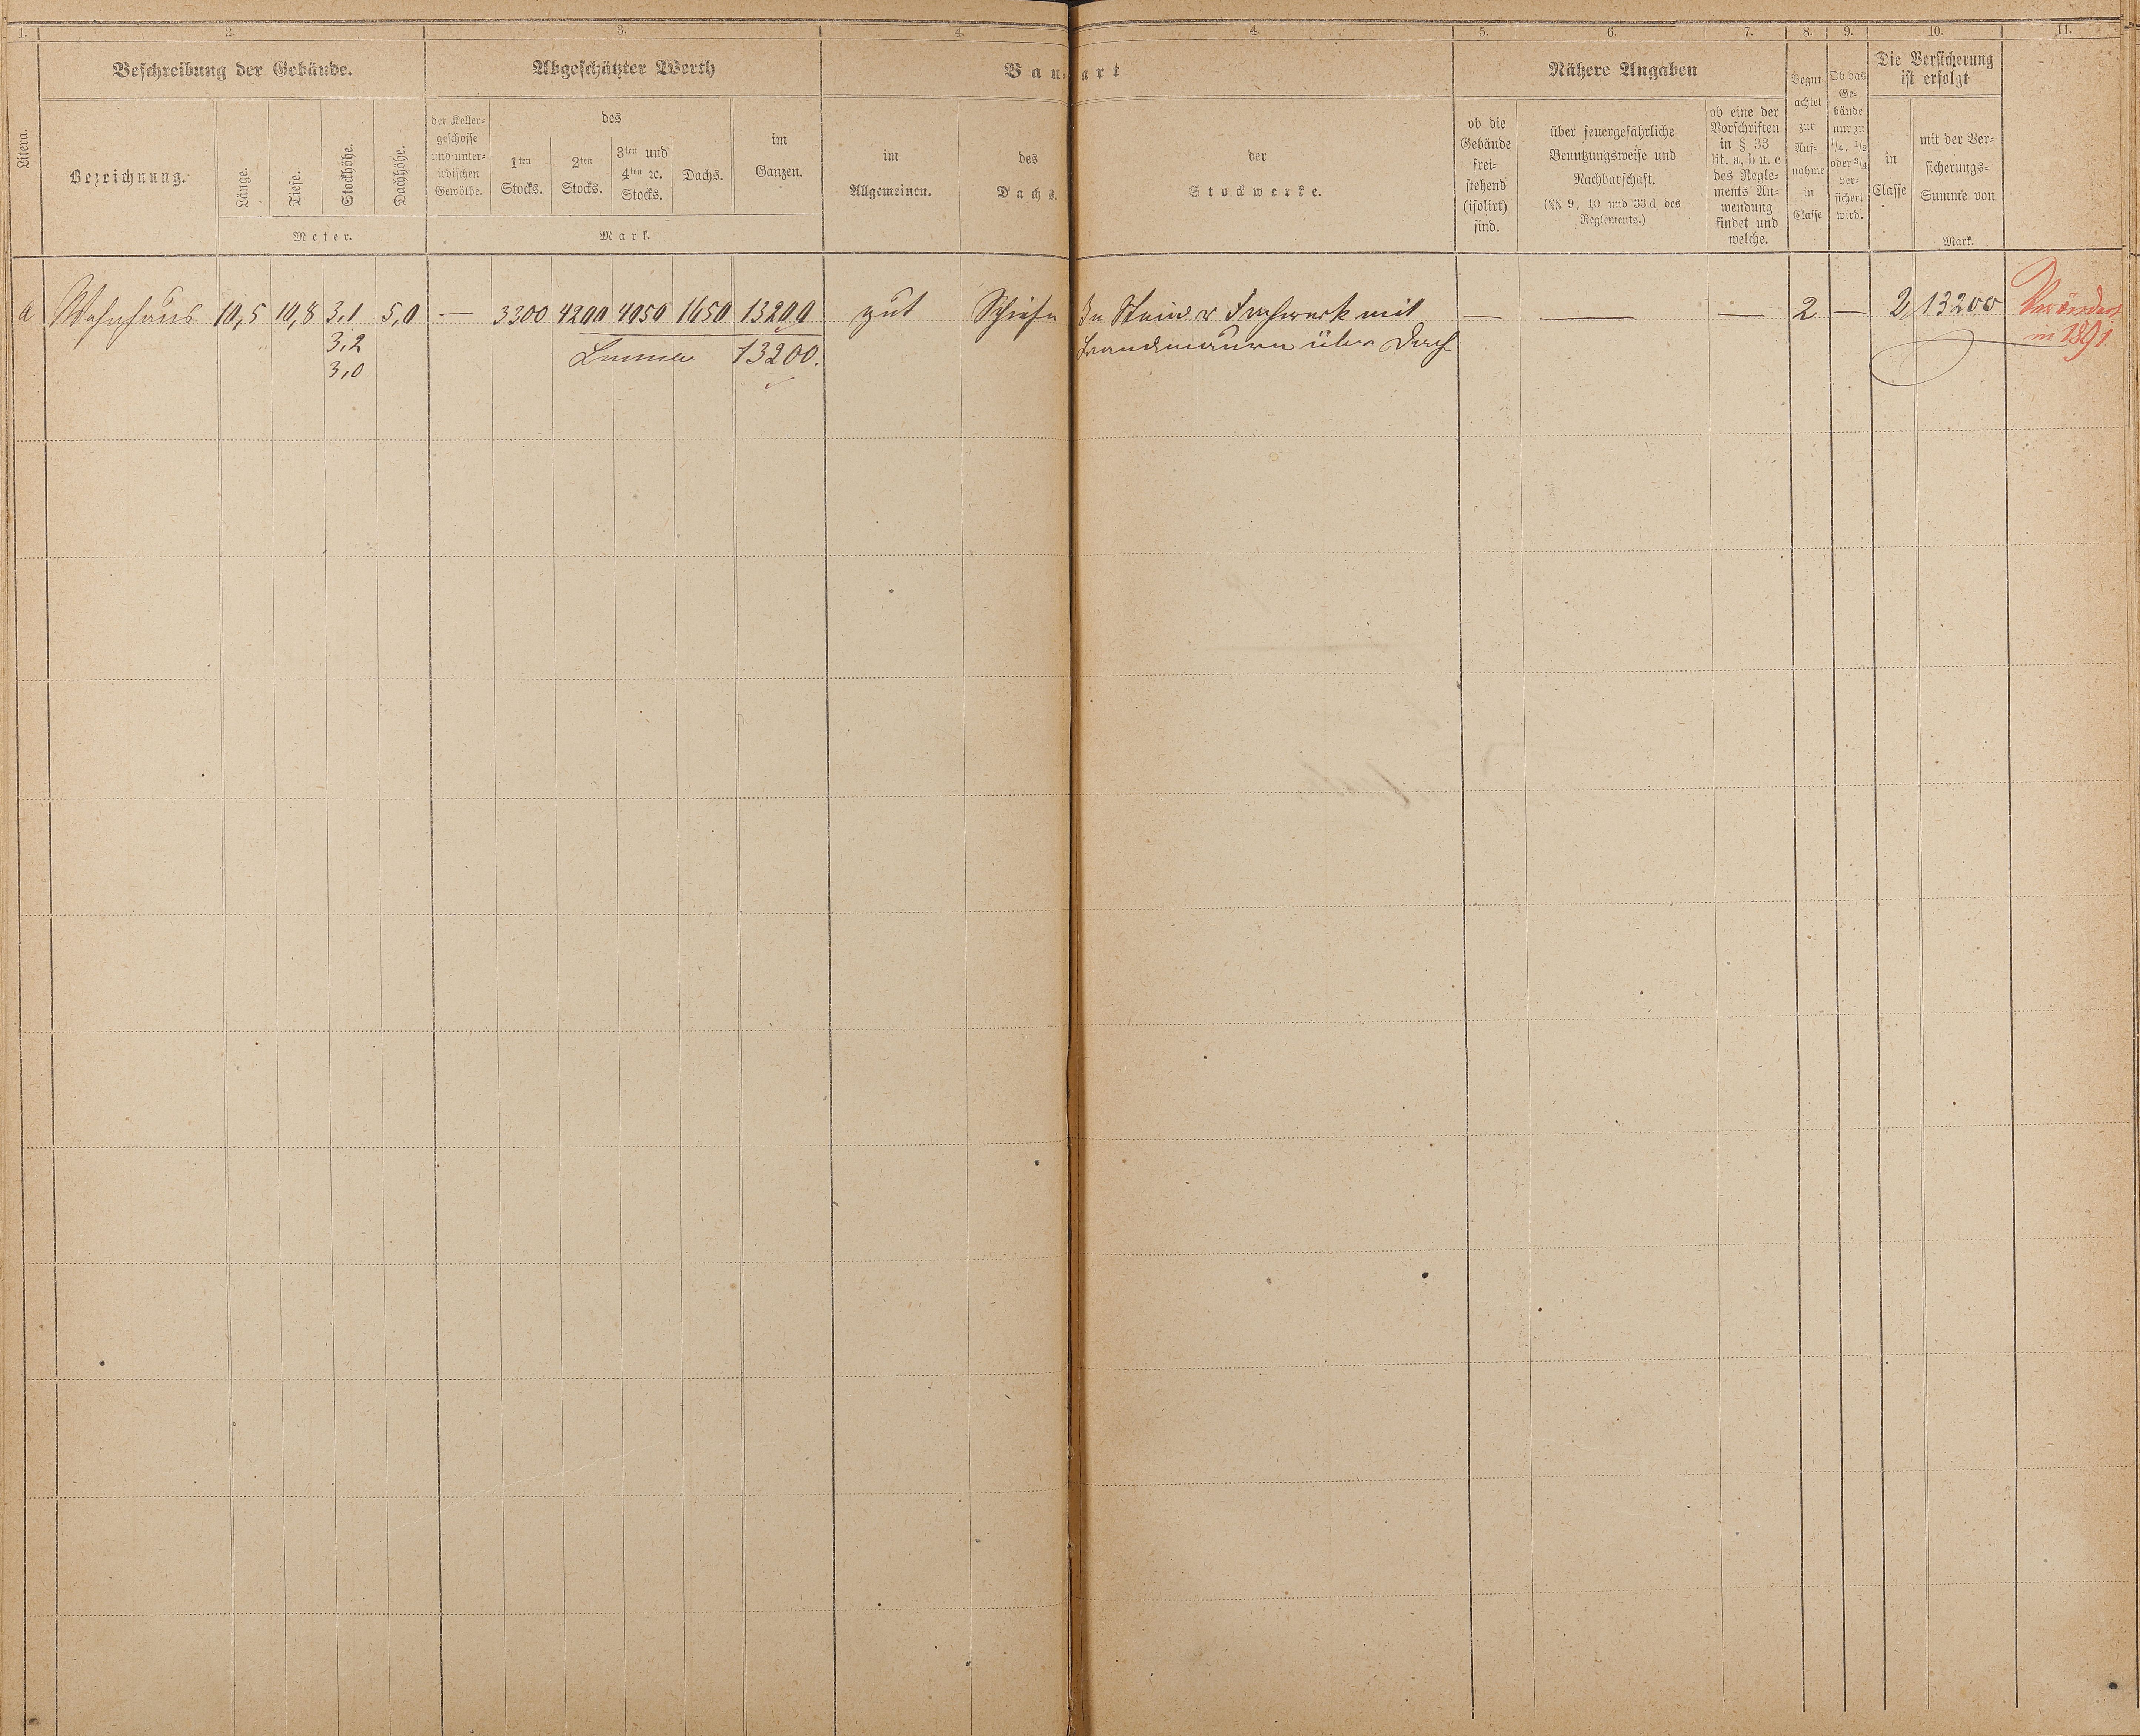 1. 2. 3. 4. 4. 5. 6. 7. 8. 9. 10. 11.
Beschreibung der Gebäude. Abgeschätzter Werth Bau- art Nähere Angaben Die Versicherung
ist erfolgt
Litera.
Bezeichnung.
Länge.
Tiefe.
Stockhöhe.
Dachhöhe.
Meter.
der Keller-
geschosse
und unter-
irdischen
Gewölbe.
des
1ten
Stocks.
2ten
Stocks.
3ten und
4ten ꝛc.
Stocks.
Dachs.
im
Ganzen.
Mark.
im
Allgemeinen.
des
Dachs.
der
Stockwerke.
ob die
Gebäude
frei-
stehend
(isolirt)
sind.
über feuergefährliche
Benutzungsweise und
Nachbarschaft.
(§§ 9, 10 und 33d des
Reglements.)
ob eine der
Vorschriften
in § 33
lit. a, b u. c
des Regle-
ments An-
wendung
findet und
welche.
Begut-
achtet
zur
Auf-
nahme
in
Classe
Ob das
Ge-
bäude
nur zu
1/4, 1/2
oder 3/4
ver-
sichert
wird.
in
Classe
mit der Ver-
sicherungs-
Summe von
Mark.
a Wohnhaus 10,5 10,8 3,1 5,0 — 3300 4200 4050 1650 13200 gut Schiefer Stein Fachwerk mit — — — 2 — 2 13200 Verändert
3,2 Summa 13200. Brandmauern über Dach in 1891.
3,0